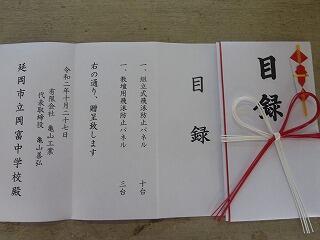 目録
目録
一、組立式飛沫防止パネル 十台
一、教壇用飛沫防止パネル 三台
右の通り、贈呈致します
令和二年十月二十七日
有限会社 亀山工業
代表取締役 亀山善弘
延岡市立岡富中学校殿